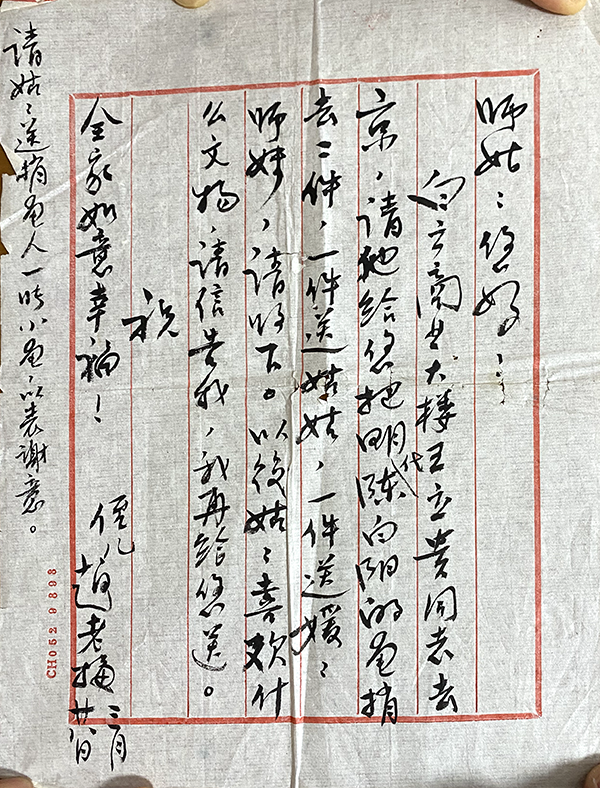 师姑：您好！
白云商业大楼王立贵同志去
京，请他给您把明代陈白阳的画捎
去二件，一件送姑姑，一件送媛〻
师妹，请收下。以後姑〻喜欢什
么文物，请信告我，我再给您送。
祝
全家如意幸福！
侄儿 赵老
三月
请姑〻送捎画人一张小画，以表谢意。
CH052 9893